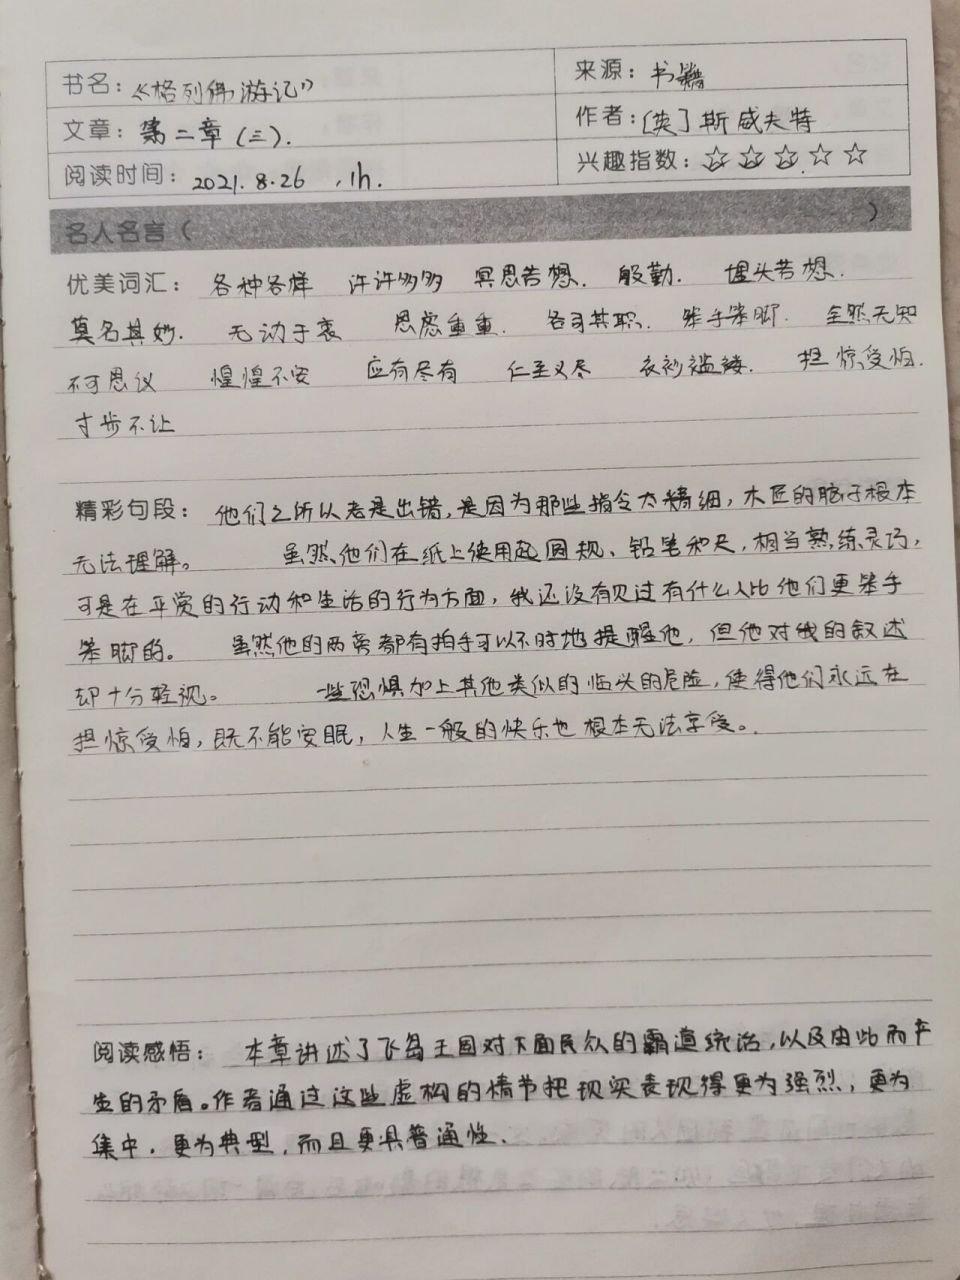 书名：《格列佛游记》
来源：书籍
文章：第二章(三).
作者：[英]斯威夫特
阅读时间：2021.8.26 ,1h.
兴趣指数：☆☆☆☆☆
名人名言（ ）
优美词汇： 各种各样 许许多多 冥思苦想. 殷勤. 埋头苦想.
莫名其妙. 无动于衷 思虑重重. 各司其职. 笨手笨脚. 全然无知
不可思议 惶惶不安 应有尽有 仁至义尽 衣衫褴褛. 担惊受怕.
寸步不让
精彩句段： 他们之所以老是出错,是因为那些指令太精细，木匠的脑子根本
无法理解。 虽然他们在纸上使用起圆规、铅笔和尺,相当熟练灵巧,
可是在平常的行动和生活的行为方面，我还没有见过有什么人比他们更笨手
笨脚的。 虽然他的两旁都有拍手可以不时地提醒他，但他对我的叙述
却十分轻视。 一些恐惧加上其他类似的临头的危险,使得他们永远在
担惊受怕，既不能安眠，人生一般的快乐也根本无法享受。
阅读感悟： 本章讲述了飞岛王国对下面民众的霸道统治,以及由此而产
生的矛盾。作者通过这些虚构的情节把现实表现得更为强烈，更为
集中，更为典型，而且更具普通性.